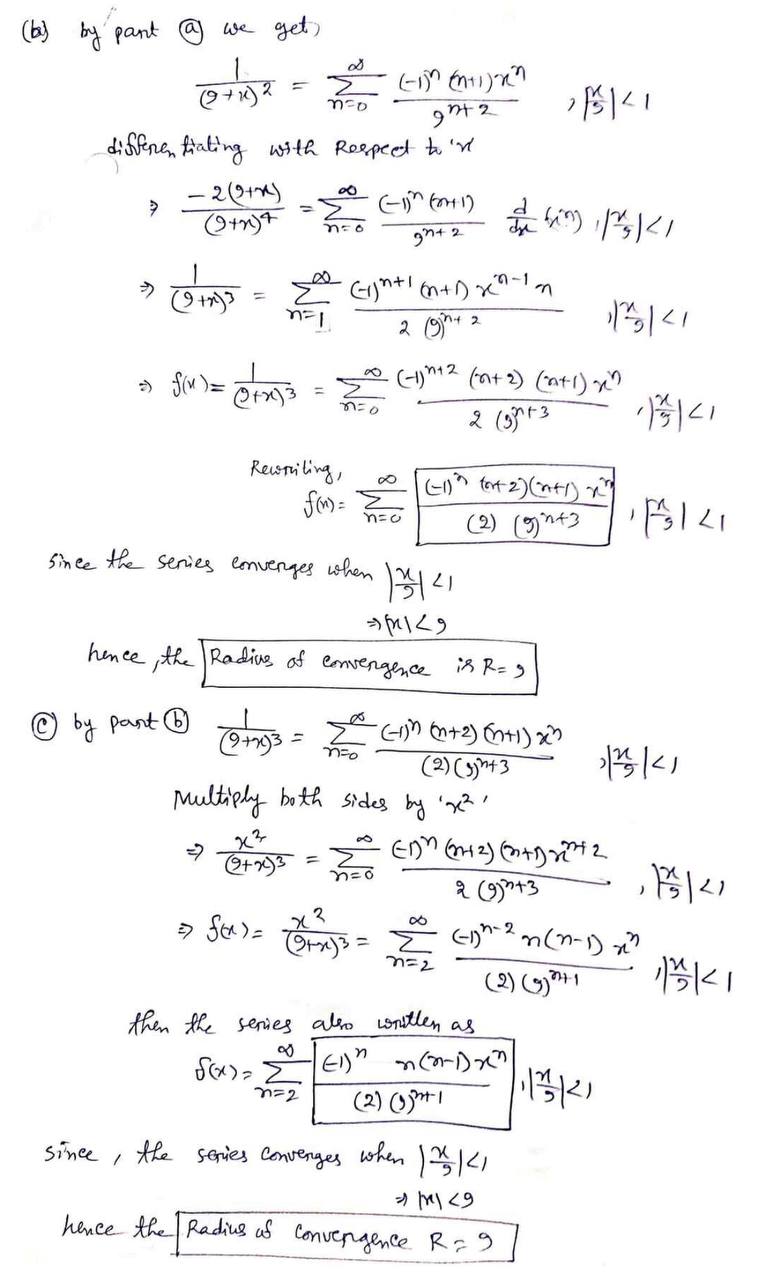 (b) by part ⓐ we get,
1/(9+x)^2 = ∑_{n=0}^{∞} (-1)^n (n+1) x^n / 9^{n+2} , |x/9| < 1
differentiating with Respect to 'x'
⇒ -2(9+x)/(9+x)^4 = ∑_{n=0}^{∞} (-1)^n (n+1) / 9^{n+2} d/dx (x^n) , |x/9| < 1
⇒ 1/(9+x)^3 = ∑_{n=1}^{∞} (-1)^{n+1} (n+1) x^{n-1} n / 2 (9)^{n+2} , |x/9| < 1
⇒ f(x) = 1/(9+x)^3 = ∑_{n=0}^{∞} (-1)^{n+2} (n+2) (n+1) x^n / 2 (9)^{n+3} , |x/9| < 1
Rewriting,
f(x) = ∑_{n=0}^{∞} (-1)^n (n+2)(n+1) x^n / (2) (9)^{n+3} , |x/9| < 1
Since the series converges when |x/9| < 1
⇒ |x| < 9
hence, the Radius of convergence is R = 9
ⓒ by part ⓑ 1/(9+x)^3 = ∑_{n=0}^{∞} (-1)^n (n+2) (n+1) x^n / (2) (9)^{n+3} , |x/9| < 1
Multiply both sides by 'x^2'
⇒ x^2/(9+x)^3 = ∑_{n=0}^{∞} (-1)^n (n+2) (n+1) x^{n+2} / 2 (9)^{n+3} , |x/9| < 1
⇒ f(x) = x^2/(9+x)^3 = ∑_{n=2}^{∞} (-1)^{n-2} n(n-1) x^n / (2) (9)^{n+1} , |x/9| < 1
then the series also written as
f(x) = ∑_{n=2}^{∞} (-1)^n n(n-1) x^n / (2) (9)^{n+1} , |x/9| < 1
since, the series Converges when |x/9| < 1
⇒ |x| < 9
hence the Radius of Convergence R = 9